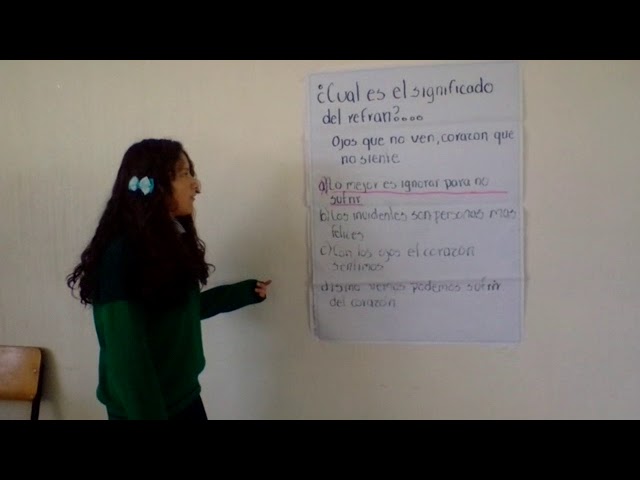 ¿Cual es el significado
del refran?....
Ojos que no ven, corazon que
no siente
a) Lo mejor es ignorar para no
sufrir
b) Los invidentes son personas mas
felices
c) Con los ojos el corazon
sentimos
d) si no vemos podemos sufrir
del corazon